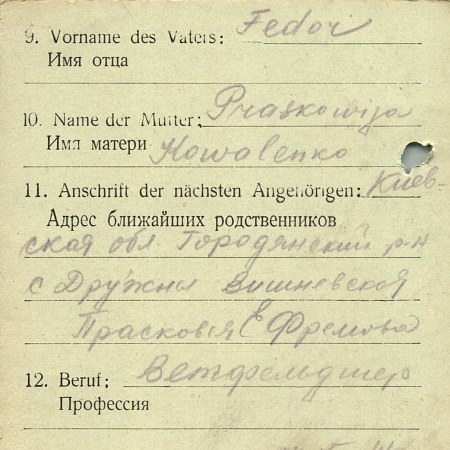 9. Vorname des Vaters: Fedor
Имя отца
10. Name der Mutter: Praskowija
Имя матери Kowalenko
11. Anschrift der nächsten Angehörigen: Киев-
Адрес ближайших родственников
ская обл. Городянский р-н
с Дружны Вишневская
Прасковья Ефремова
12. Beruf: Ветфельдшер
Профессия